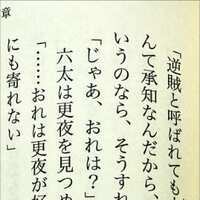 章
「逆賊と呼ばれても
んて承知なんだから、
いうのなら、そうすれ
「じゃあ、おれは?」
六太は更夜を見つめ
「……おれは更夜が好
にも寄れない」